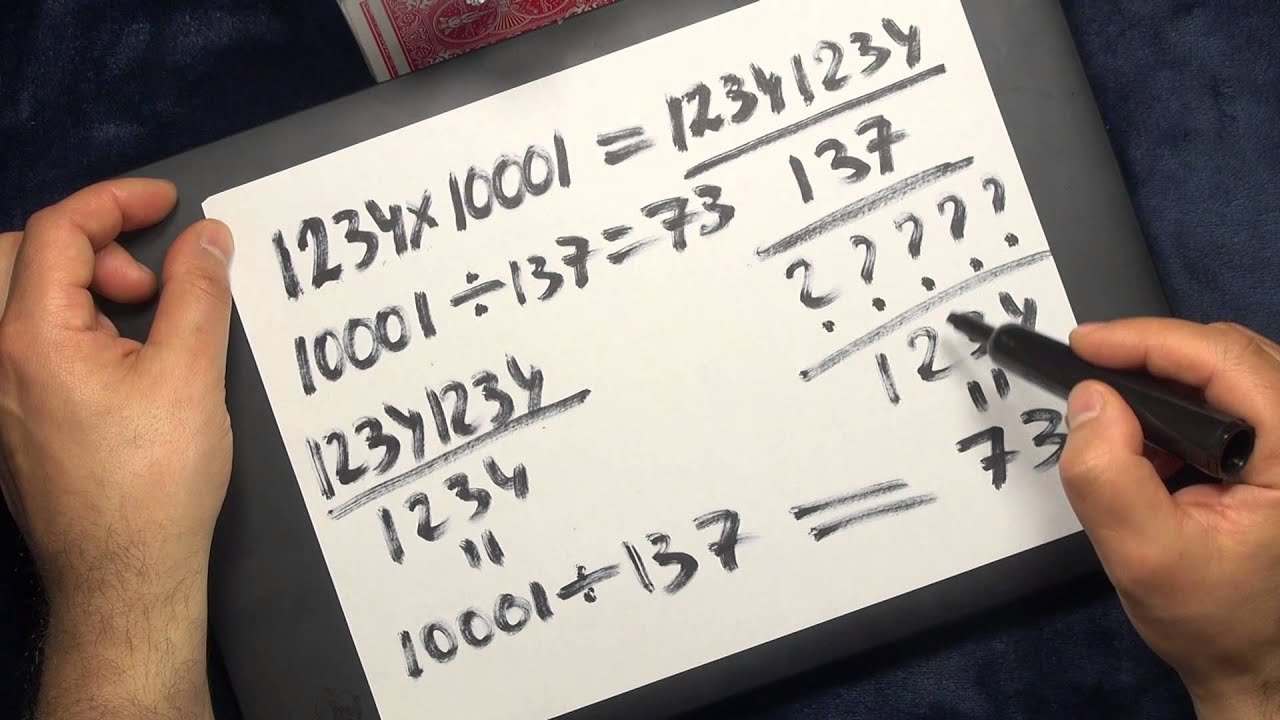 1234×10001 = 12341234
137
10001÷137=73
? ? ? ? ?
1234
||
73
12341234
1234
||
10001÷137 =